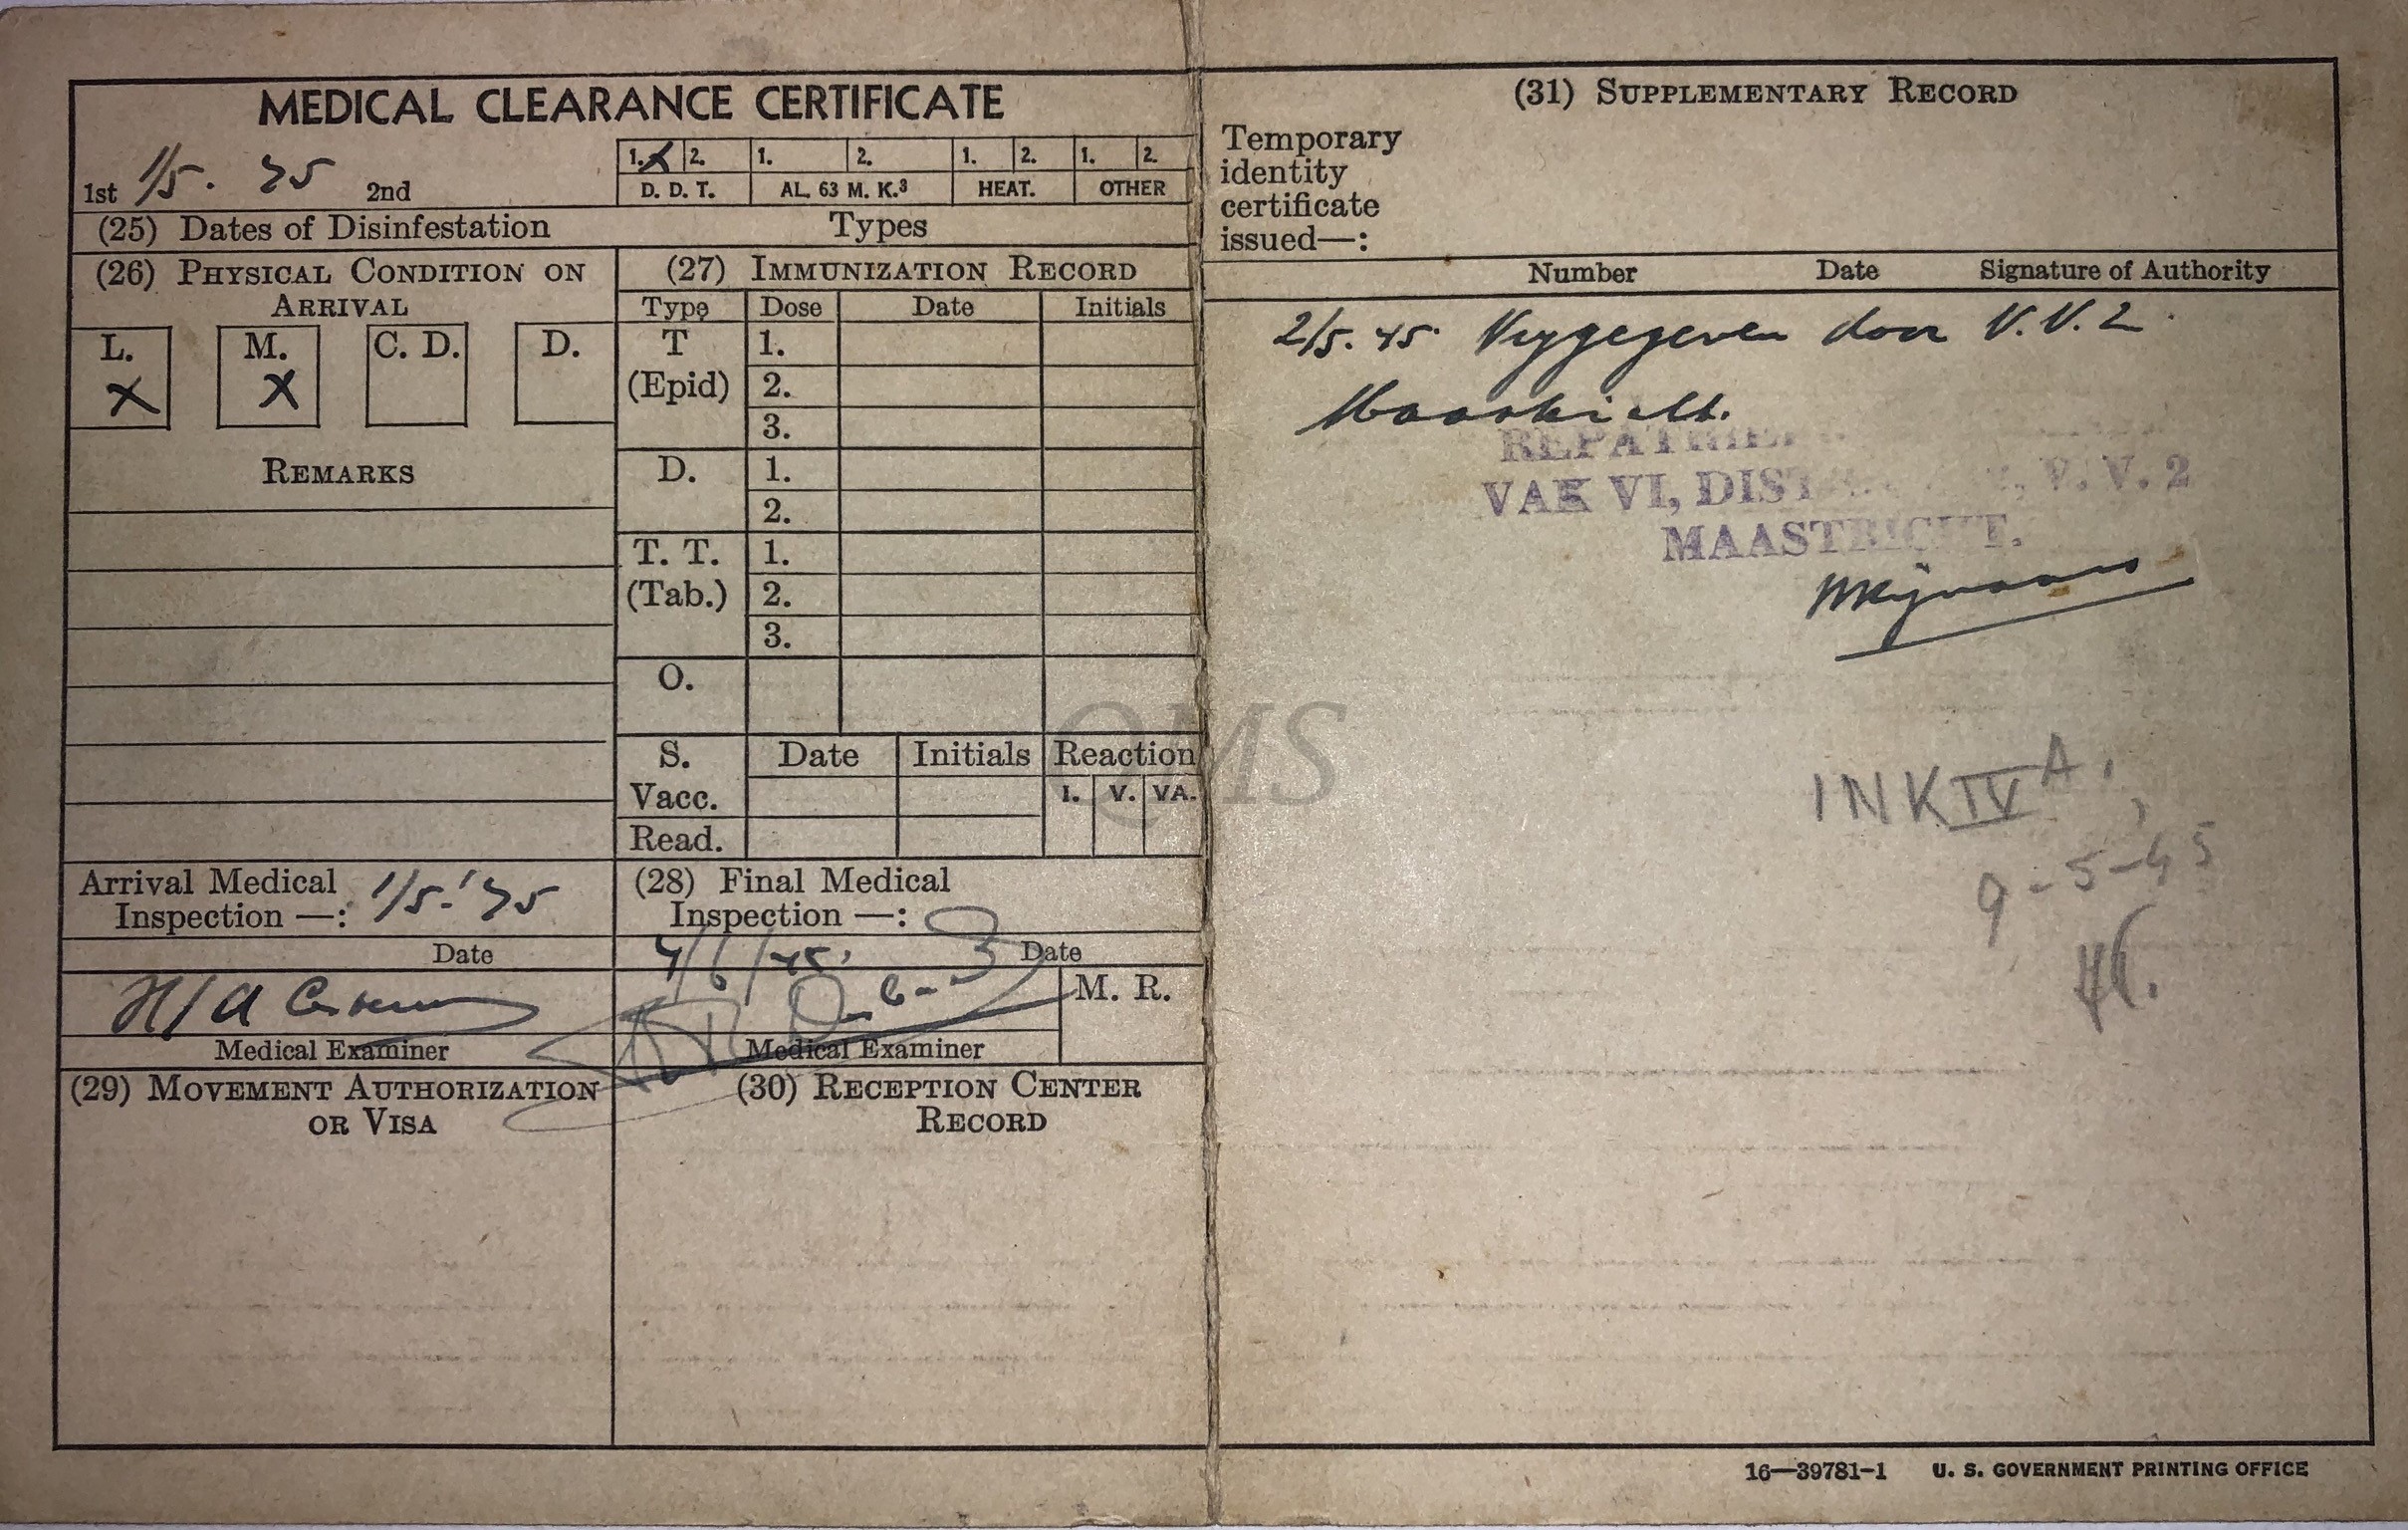 MEDICAL CLEARANCE CERTIFICATE
1st 1/5. 45 2nd
1. X 2. 1. 2. 1. 2. 1. 2.
D. D. T. AL. 63 M. K.³ HEAT. OTHER
(25) Dates of Disinfestation Types
(26) PHYSICAL CONDITION ON
ARRIVAL
L. M. C. D. D.
X X
REMARKS
(27) IMMUNIZATION RECORD
Type Dose Date Initials
T 1.
(Epid) 2.
3.
D. 1.
2.
T. T. 1.
(Tab.) 2.
3.
O.
S. Date Initials Reaction
Vacc. I. V. VA.
Read.
Arrival Medical
Inspection —: 1/5.'45
Date
H/A
Medical Examiner
(28) Final Medical
Inspection —:
Date
M. R.
Medical Examiner
(29) MOVEMENT AUTHORIZATION
OR VISA
(30) RECEPTION CENTER
RECORD
(31) SUPPLEMENTARY RECORD
Temporary
identity
certificate
issued—:
Number Date Signature of Authority
2/5.45. Vrygegeven door V.V.2.
Maastricht.
VAK VI, V. V. 2
MAASTRICHT.
INK IV A.
9-5-45
QMS
16—39781-1 U. S. GOVERNMENT PRINTING OFFICE